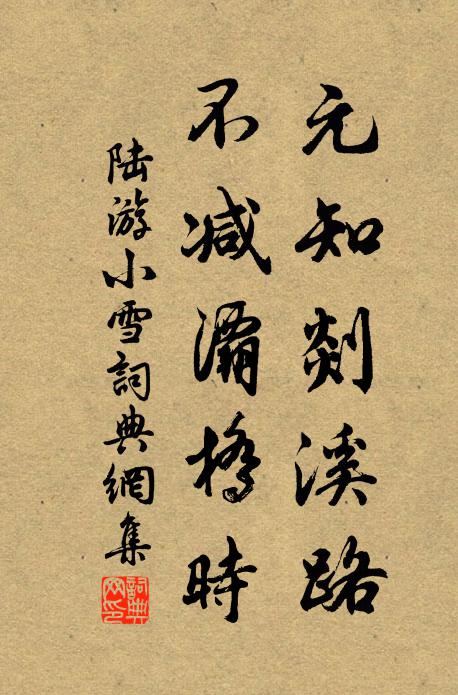 元知剡溪路
不減灞橋時
陸游小雪詞典網集
詞典网印